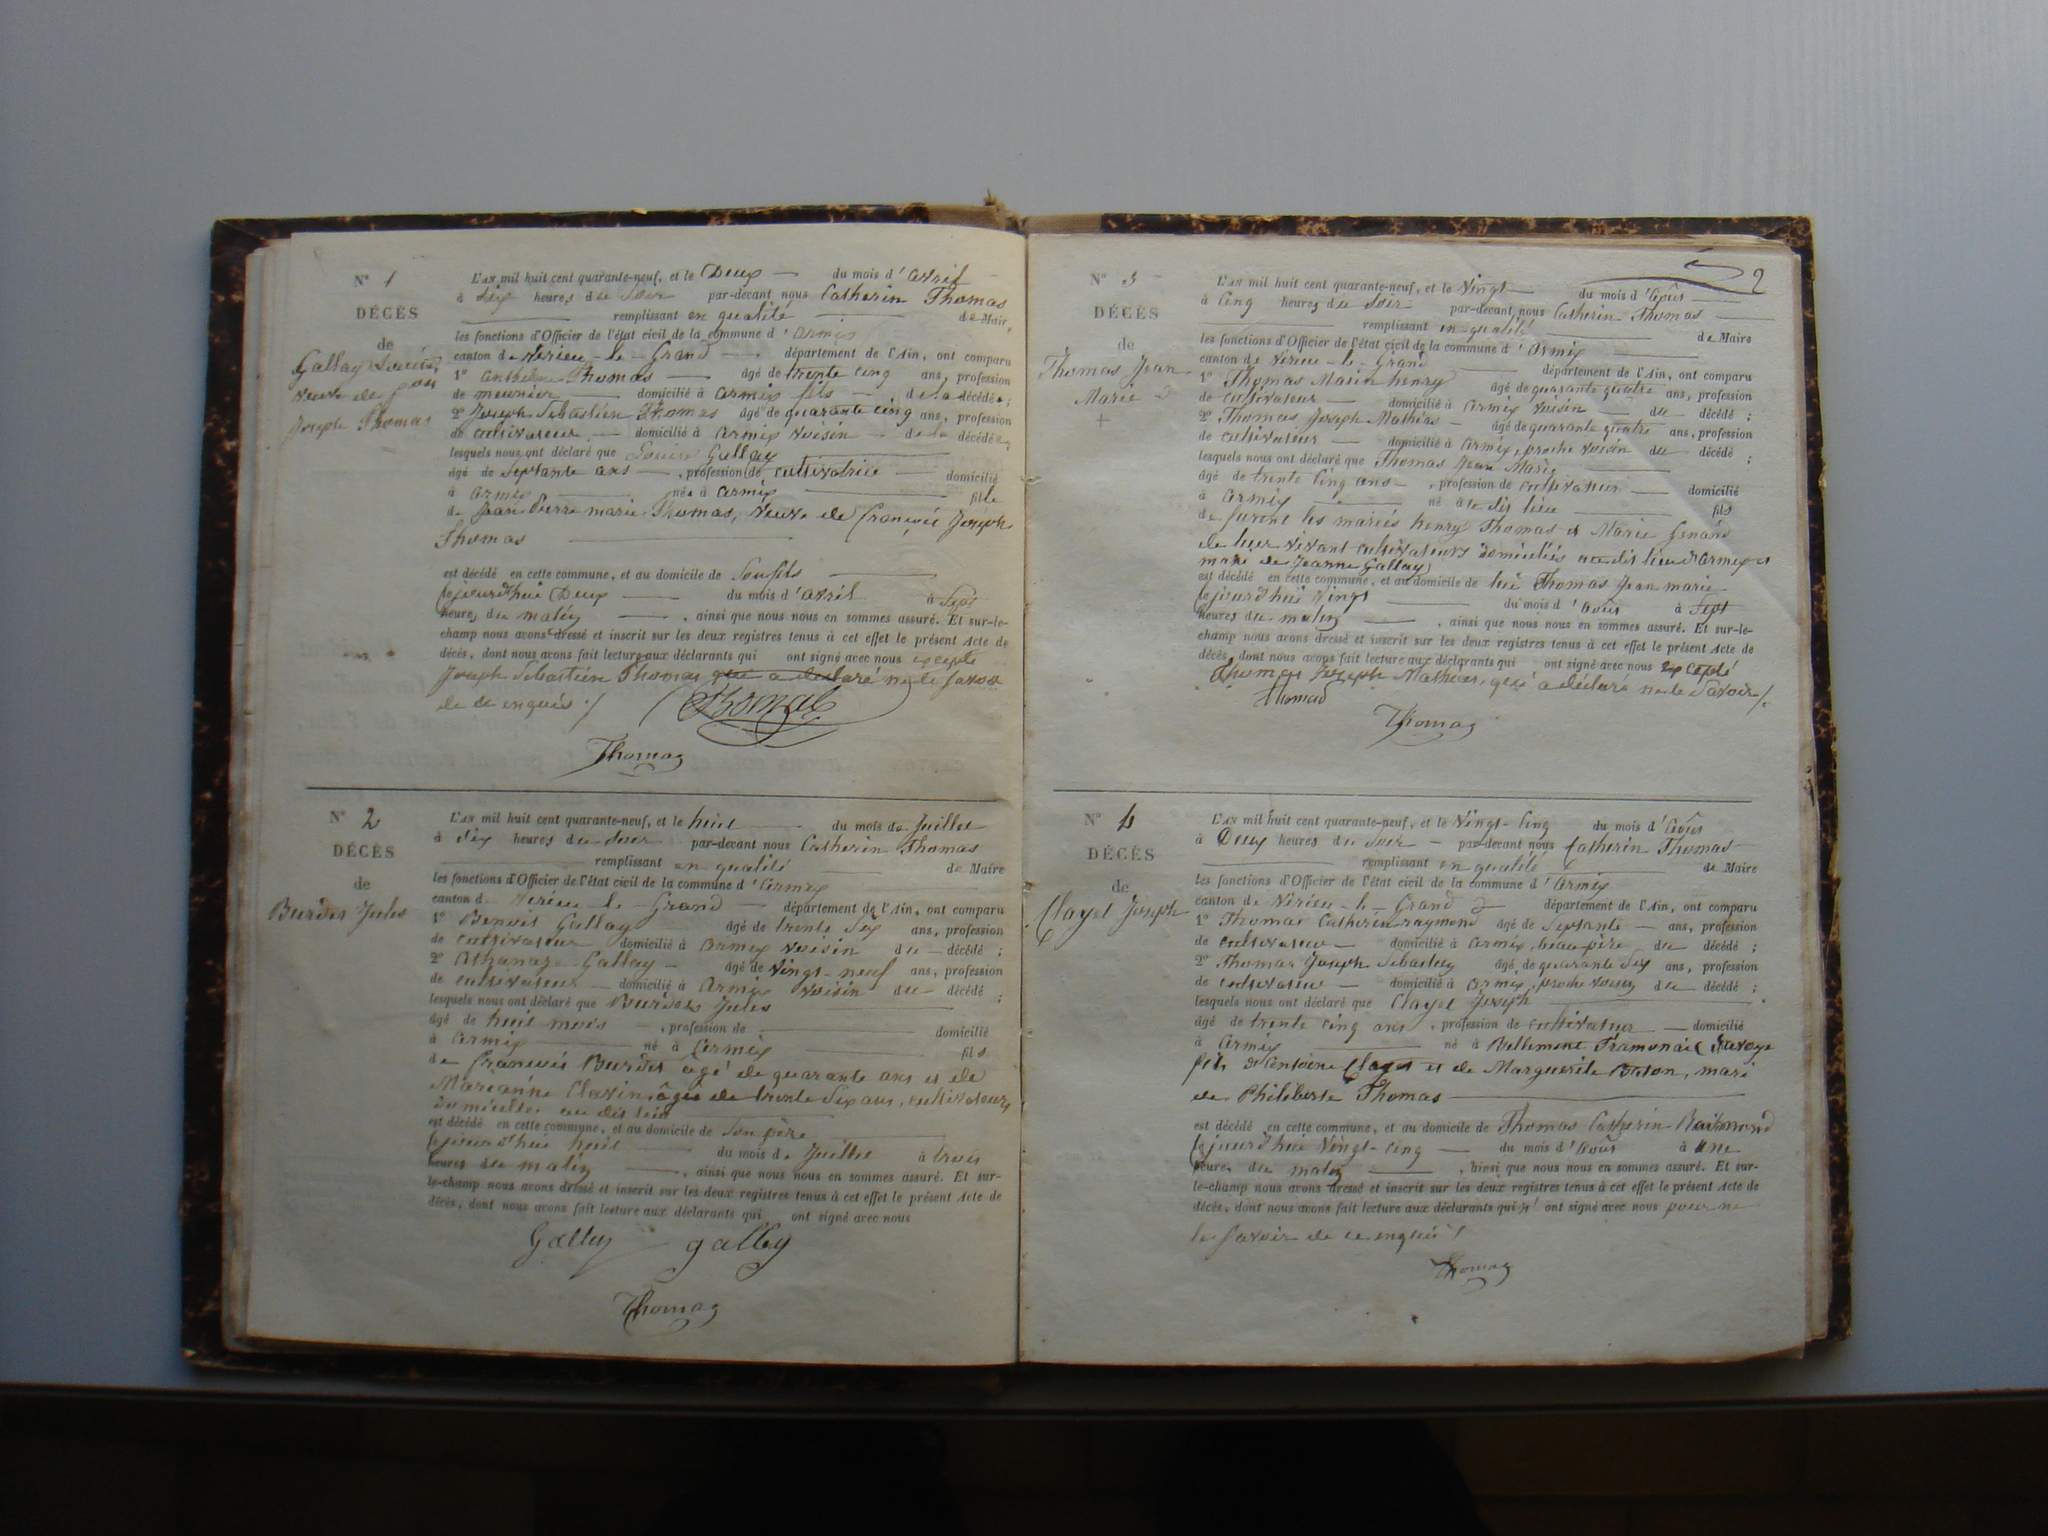 N° 1
DÉCÈS
de
Gallay Louise
veuve de feu
Joseph Thomas
L'AN mil huit cent quarante-neuf, et le Deux du mois d'avril
à six heures du soir par-devant nous Catherin Thomas
remplissant en qualité de Maire
les fonctions d'Officier de l'état civil de la commune d'armix
canton de Virieu-le-Grand département de l'Ain, ont comparu
1° anthelme Thomas âgé de trente cinq ans, profession
de meunier domicilié à armix fils de la décédée ;
2° Joseph Sébastien Thomas âgé de quarante cinq ans, profession
de cultivateur domicilié à armix voisin de la décédée
lesquels nous ont déclaré que Louise Gallay
âgé de septante ans , profession de cultivatrice domicilié
à armix née à armix fille
de Jean Pierre marie Thomas, veuve de françois Joseph
Thomas
est décédé en cette commune, et au domicile de son fils
cejourd'hui Deux du mois d'avril à sept
heures du matin , ainsi que nous nous en sommes assuré. Et sur-le-
champ nous avons dressé et inscrit sur les deux registres tenus à cet effet le présent Acte de
décès, dont nous avons fait lecture aux déclarants qui ont signé avec nous excepté
Joseph Sébastien Thomas qui a déclaré ne le savoir
de ce enquis ./
Thomas
Thomas
N° 2
DÉCÈS
de
Burdet Jules
L'AN mil huit cent quarante-neuf, et le huit du mois de Juillet
à six heures du soir par-devant nous Catherin Thomas
remplissant en qualité de Maire
les fonctions d'Officier de l'état civil de la commune d'armix
canton de Virieu-le-Grand département de l'Ain, ont comparu
1° Benoit Gallay âgé de trente six ans, profession
de cultivateur domicilié à armix voisin du décédé ;
2° Athanaz Gallay âgé de vingt-neuf ans, profession
de cultivateur domicilié à armix voisin du décédé ;
lesquels nous ont déclaré que Burdet Jules
âgé de huit mois , profession de domicilié
à armix né à armix fils
de françois Burdet âgé de quarante ans et de
Marianne Clavin âgée de trente six ans, cultivateurs
domiciliés au dit lieu
est décédé en cette commune, et au domicile de son père
cejourd'hui huit du mois de Juillet à trois
heures du matin , ainsi que nous nous en sommes assuré. Et sur-
le-champ nous avons dressé et inscrit sur les deux registres tenus à cet effet le présent Acte de
décès, dont nous avons fait lecture aux déclarants qui ont signé avec nous
Gallay gallay
Thomas
2
N° 3
DÉCÈS
de
Thomas Jean
Marie
L'AN mil huit cent quarante-neuf, et le vingt du mois d'aoûst
à cinq heures du soir par-devant nous Catherin Thomas
remplissant en qualité de Maire
les fonctions d'Officier de l'état civil de la commune d'armix
canton de Virieu-le-Grand département de l'Ain, ont comparu
1° Thomas Marin henry âgé de quarante quatre ans, profession
de cultivateur domicilié à armix voisin du décédé ;
2° Thomas Joseph Mathieu âgé de quarante quatre ans, profession
de cultivateur domicilié à armix, proche voisin du décédé ;
lesquels nous ont déclaré que Thomas Jean Marie
âgé de trente cinq ans , profession de cultivateur domicilié
à armix né à le dit lieu fils
de furent les mariés henry Thomas et Marie Genand
de leur vivant cultivateurs domiciliés au dit lieu d'Armix et
mari de Jeanne Gallay
est décédé en cette commune, et au domicile de lui Thomas Jean marie
cejourd'hui vingt du mois d'aoûst à sept
heures du matin , ainsi que nous nous en sommes assuré. Et sur-le-
champ nous avons dressé et inscrit sur les deux registres tenus à cet effet le présent Acte de
décès, dont nous avons fait lecture aux déclarants qui ont signé avec nous excepté
Thomas Joseph Mathieu, qui a déclaré ne le savoir /.
Thomas
Thomas
N° 4
DÉCÈS
de
Clayet Joseph
L'AN mil huit cent quarante-neuf, et le vingt-cinq du mois d'aoûst
à Deux heures du soir par-devant nous Catherin Thomas
remplissant en qualité de Maire
les fonctions d'Officier de l'état civil de la commune d'armix
canton de Virieu-le-Grand département de l'Ain, ont comparu
1° Thomas Catherin raymond âgé de septante ans, profession
de cultivateur domicilié à armix, beau père du décédé ;
2° Thomas Joseph Sébastien âgé de quarante six ans, profession
de cultivateur domicilié à armix, proche voisin du décédé ;
lesquels nous ont déclaré que Clayet Joseph
âgé de trente cinq ans , profession de cultivateur domicilié
à armix né à Bellemont Tramonai Savoye
fils d'antoine Clayet et de Marguerite Boson, mari
de Philiberte Thomas
est décédé en cette commune, et au domicile de Thomas Catherin Raimond
cejourd'hui vingt-cinq du mois d'aoûst à une
heures du matin , ainsi que nous nous en sommes assuré. Et sur-
le-champ nous avons dressé et inscrit sur les deux registres tenus à cet effet le présent Acte de
décès, dont nous avons fait lecture aux déclarants qui n'ont signé avec nous pour ne
le savoir de ce enquis /
Thomas